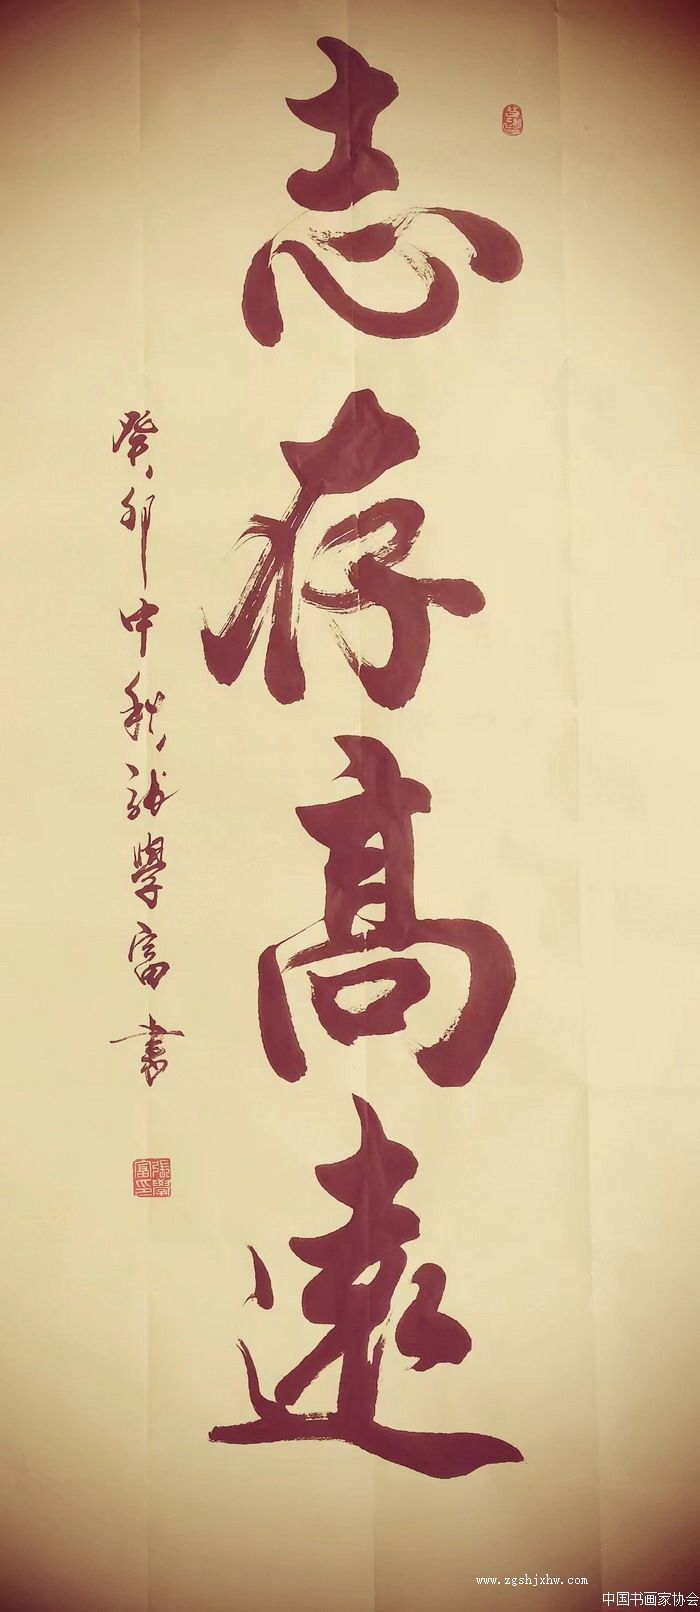 志存高遠
癸卯中秋張學富書
張學富印
www.zgshjxhw.com
中国书画家协会